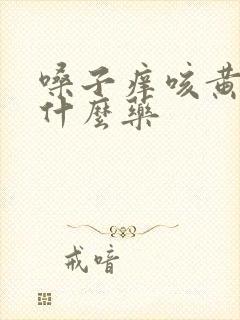 嗓子痒咳黄
什麼藥
戒喑